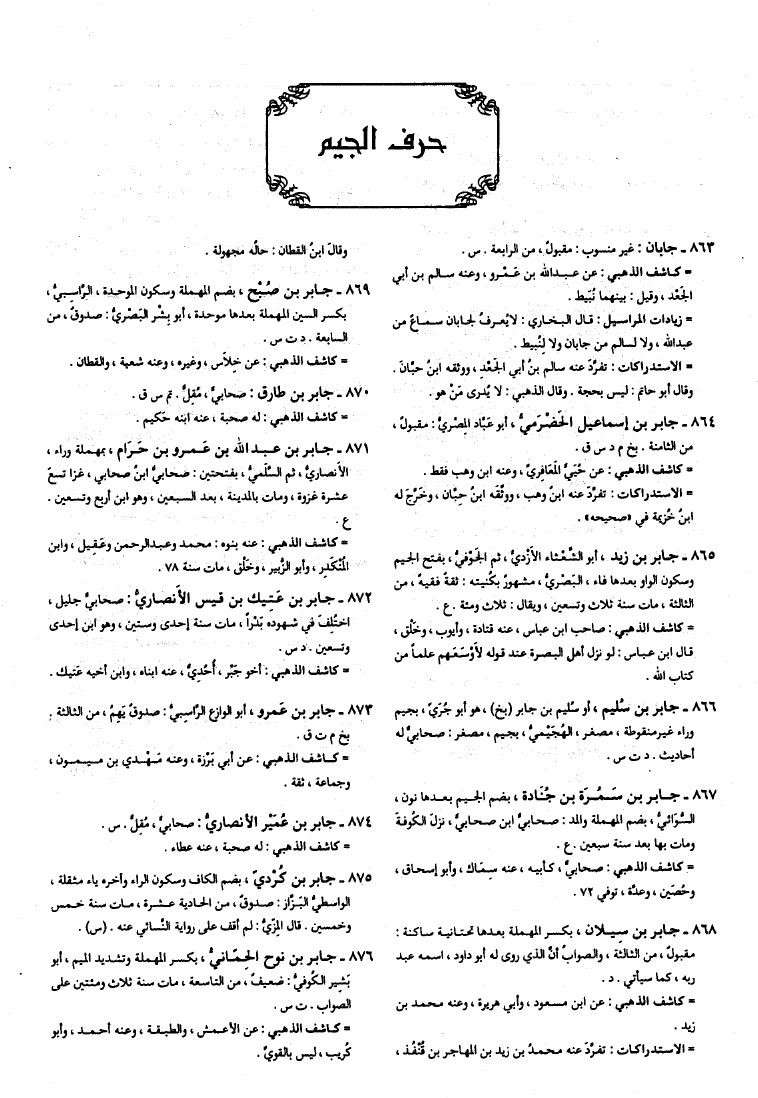 حرف الجيم
٨٦٣ ـ جابان : غير منسوب : مقبولٌ ، من الرابعة . س .
= كاشف الذهبي : عن عبدالله بن عَمْرو ، وعنه سالم بن أبي
الجَعْد ، وقيل : بينهما نُبَيط .
= زيادات المراسيل : قال البخاري : لا يُعرفُ لجابان سماعٌ من
عبدالله ، ولا لسالم من جابان ولا لنُبيط .
= الاستدراكات : تفرَّدَ عنه سالم بنُ أبي الجَعْد ، ووثقه ابنُ حبَّانَ .
وقال أبو حاتم : ليس بحجة . وقال الذهبي : لا يُدرى مَنْ هو .
٨٦٤ ـ جابر بن إسماعيل الحَضْرَميُّ ، أبو عَبَّاد المِصْريُّ : مقبولٌ ،
من الثامنة . بخ م د س ق .
= كاشف الذهبي : عن حُيَيٍّ المَعَافِريِّ ، وعنه ابن وهب فقط .
= الاستدراكات : تفرَّدَ عنه ابنُ وهب ، ووثَّقه ابنُ حِبَّان ، وخرَّجَ له
ابنُ خُزيمة في «صحيحه» .
٨٦٥ ـ جابر بن زيد ، أبو الشَّعْثاء الأَزْديُّ ، ثم الجَوْفيُّ ، بفتح الجيم
وسكون الواو بعدها فاء ، البَصْريُّ ، مشهورٌ بكُنيته : ثقةٌ فقيهٌ ، من
الثالثة ، مات سنة ثلاث وتسعين ، ويقال : ثلاث ومئة . ع .
= كاشف الذهبي : صاحب ابن عباس ، عنه قتادة ، وأيوب ، وخَلْق ،
قال ابن عباس : لو نزل أهل البصرة عند قوله لأَوْسَعَهم علماً من
كتاب الله .
٨٦٦ ـ جابر بن سُليم ، أو سُليم بن جابر (بخ) ، هو أبو جُرَيّ ، بجيم
وراء غيرمنقوطة ، مصغر ، الهُجَيْميُّ ، بجيم ، مصغر : صحابيٌّ له
أحاديث . د ت س .
٨٦٧ ـ جابر بن سَمُرَة بن جُنَادة ، بضم الجيم بعدها نون ،
السُّوَائيُّ ، بضم المهملة والمد : صحابيٌّ ابن صحابيٍّ ، نزلَ الكُوفةَ
ومات بها بعد سنة سبعين . ع .
= كاشف الذهبي : صحابيٌّ ، كأبيه ، عنه سِمَاك ، وأبو إسحاق ،
وحُصَين ، وعدَّة ، توفي ٧٢ .
٨٦٨ ـ جابر بن سِيلان ، بكسر المهملة بعدها تحتانية ساكنة :
مقبولٌ ، من الثالثة ، والصوابُ أنَّ الذي روى له أبو داود ، اسمه عبد
ربه ، كما سيأتي . د .
= كاشف الذهبي : عن ابن مسعود ، وأبي هريرة ، وعنه محمد بن
زيد .
= الاستدراكات : تفرَّدَ عنه محمدُ بن زيد بن المهاجر بن قُنْفُذ ،
وقالَ ابنُ القطان : حالُه مجهولة .
٨٦٩ ـ جابر بن صُبْح ، بضم المهملة وسكون الموحدة ، الرَّاسِبيُّ ،
بكسر السين المهملة بعدها موحدة ، أبو بِشْر البَصْريُّ : صدوقٌ ، من
السابعة . د ت س .
= كاشف الذهبي : عن خِلاَس ، وغيره ، وعنه شعبة ، والقطان .
٨٧٠ ـ جابر بن طارق : صحابيٌّ ، مُقِلٌّ . تم س ق .
= كاشف الذهبي : له صحبة ، عنه ابنه حَكيم .
٨٧١ ـ جابر بن عبدالله بن عَمرو بن حَرَام ، بمهملة وراء ،
الأنصاريُّ ، ثم السَّلَميُّ ، بفتحتين : صحابيٌّ ابنُ صحابي ، غزا تسعَ
عشرة غزوة ، ومات بالمدينة ، بعد السبعين ، وهو ابن أربع وتسعين .
ع .
= كاشف الذهبي : عنه بنوه : محمد وعبدالرحمن وعَقِيل ، وابن
المُنْكَدِر ، وأبو الزُّبير ، وخَلْق ، مات سنة ٧٨ .
٨٧٢ ـ جابر بن عَتِيك بن قيس الأنصاريُّ : صحابيٌّ جليل ،
اختُلِفَ في شهوده بَدْراً ، مات سنة إحدى وستين ، وهو ابن إحدى
وتسعين . د س .
= كاشف الذهبي : أخو جَبْر ، أُحُديٌّ ، عنه ابناه ، وابن أخيه عَتيك .
٨٧٣ ـ جابر بن عَمرو ، أبو الوازع الرَّاسِبيُّ : صدوقٌ يَهِمُ ، من الثالثة .
بخ م ت ق .
= كاشف الذهبي : عن أبي بَرْزة ، وعنه مَهْدي بن ميمون ،
وجماعة ، ثقة .
٨٧٤ ـ جابر بن عُمَيْر الأنصاريُّ : صحابيٌّ ، مُقِلٌّ . س .
= كاشف الذهبي : له صحبة ، عنه عطاء .
٨٧٥ ـ جابر بن كُرْديّ ، بضم الكاف وسكون الراء وآخره ياء مثقلة ،
الواسطيُّ البَزَّاز : صدوقٌ ، من الحادية عشرة ، مات سنة خمس
وخمسين . قال المِزِّيُّ : لم أقف على رواية النَّسائي عنه . (س) .
٨٧٦ ـ جابر بن نوح الحِمَّانيُّ ، بكسر المهملة وتشديد الميم ، أبو
بَشِير الكُوفيُّ : ضعيفٌ ، من التاسعة ، مات سنة ثلاث ومئتين على
الصواب . ت س .
= كاشف الذهبي : عن الأعمش ، والطبقة ، وعنه أحمد ، وأبو
كُريب ، ليس بالقويِّ .